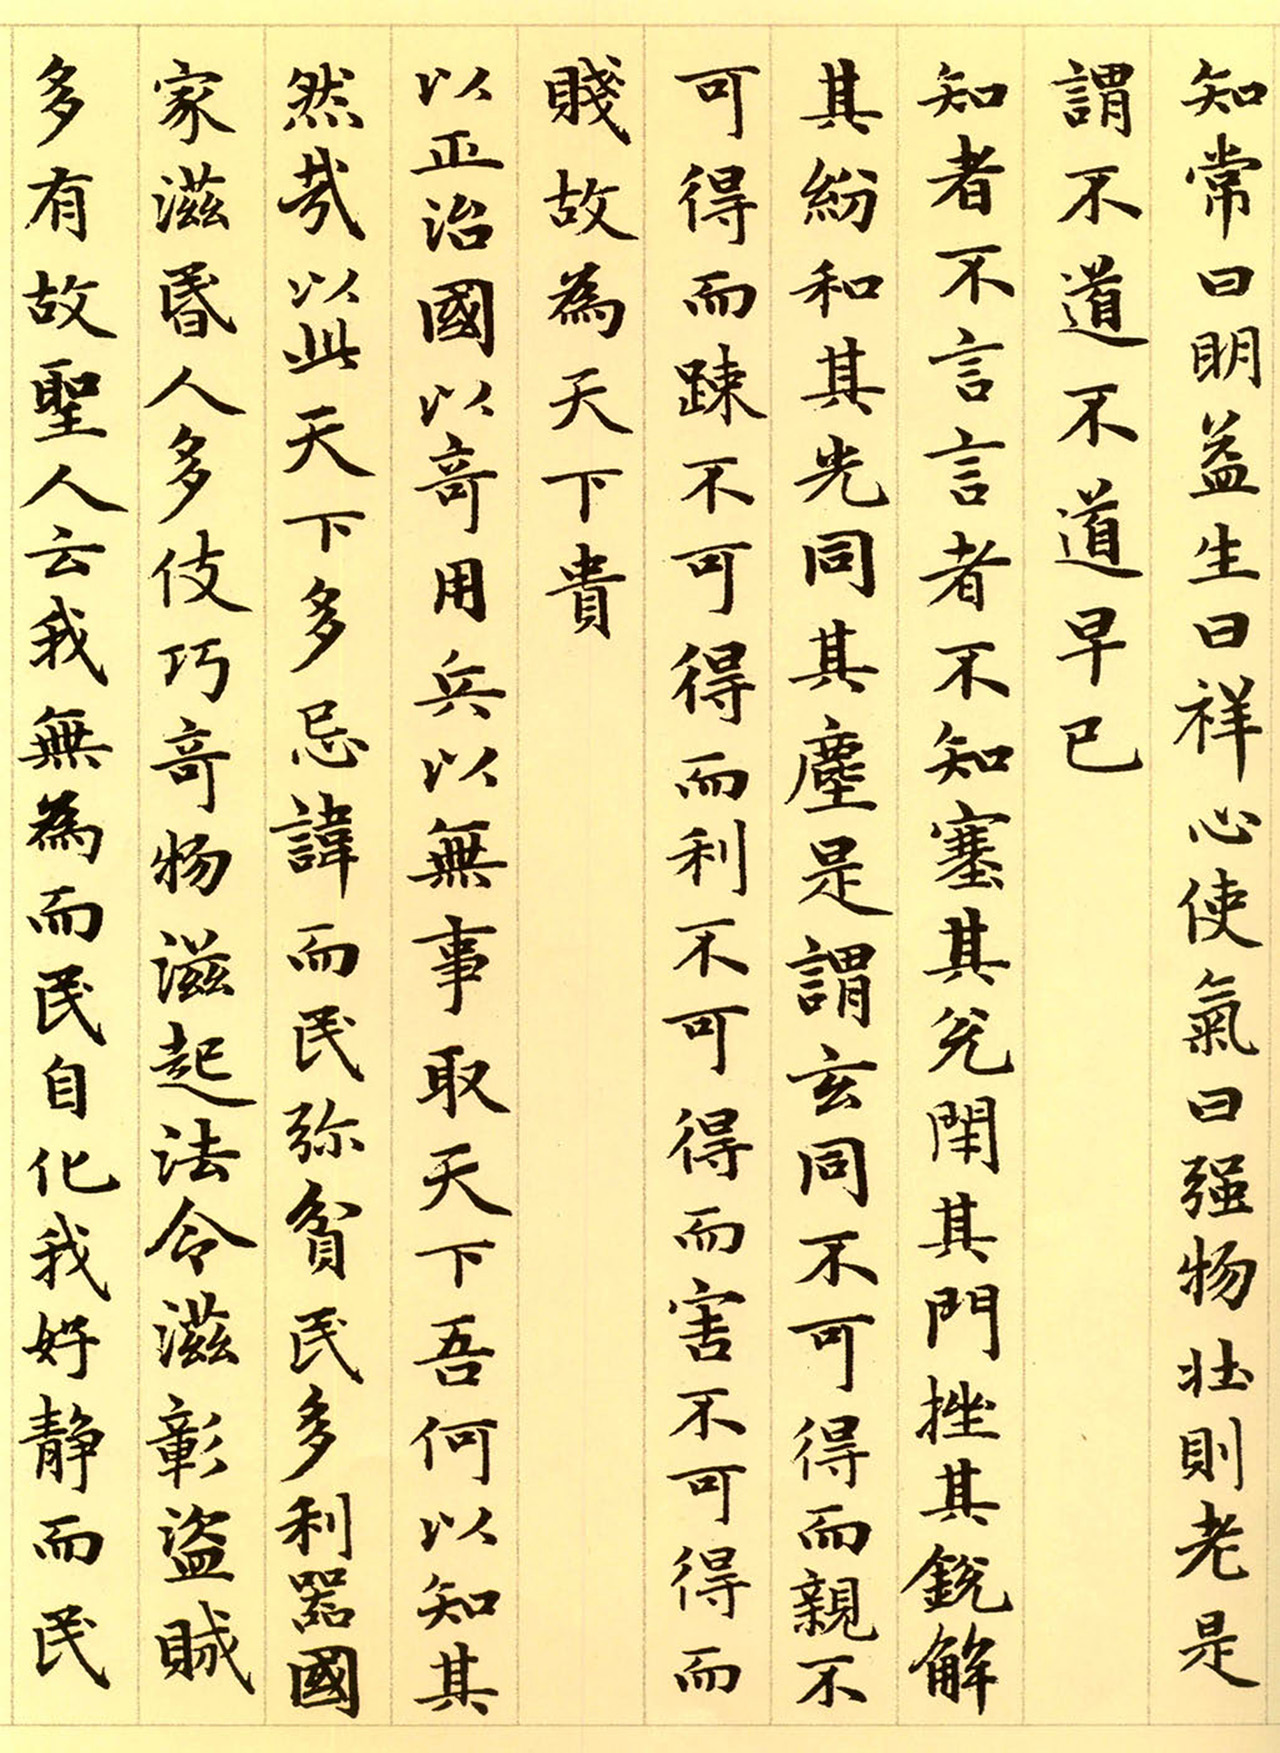 知常曰明益生曰祥心使氣曰强物壯則老是
謂不道不道早已
知者不言言者不知塞其兊閇其門挫其銳解
其紛和其光同其塵是謂玄同不可得而親不
可得而踈不可得而利不可得而害不可得而
賤故為天下貴
以正治國以竒用兵以無事取天下吾何以知其
然㢤以此天下多忌諱而民弥貧民多利器國
家滋昬人多伎巧竒物滋起法令滋彰盜賊
多有故聖人云我無為而民自化我好静而民